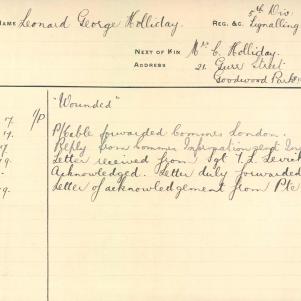 NAME Leonard George Holliday. REG. &C. 5th Div.
Signalling
NEXT OF KIN Mrs C. Holliday.
ADDRESS 21. Gurr Street.
Goodwood Park
"Wounded"
P/Cable forwarded Commrs London.
Reply from Commrs Information
Letter received from Sgt T. L.
Acknowledged. Letter duly forwarded
Letter of acknowledgement from Pte